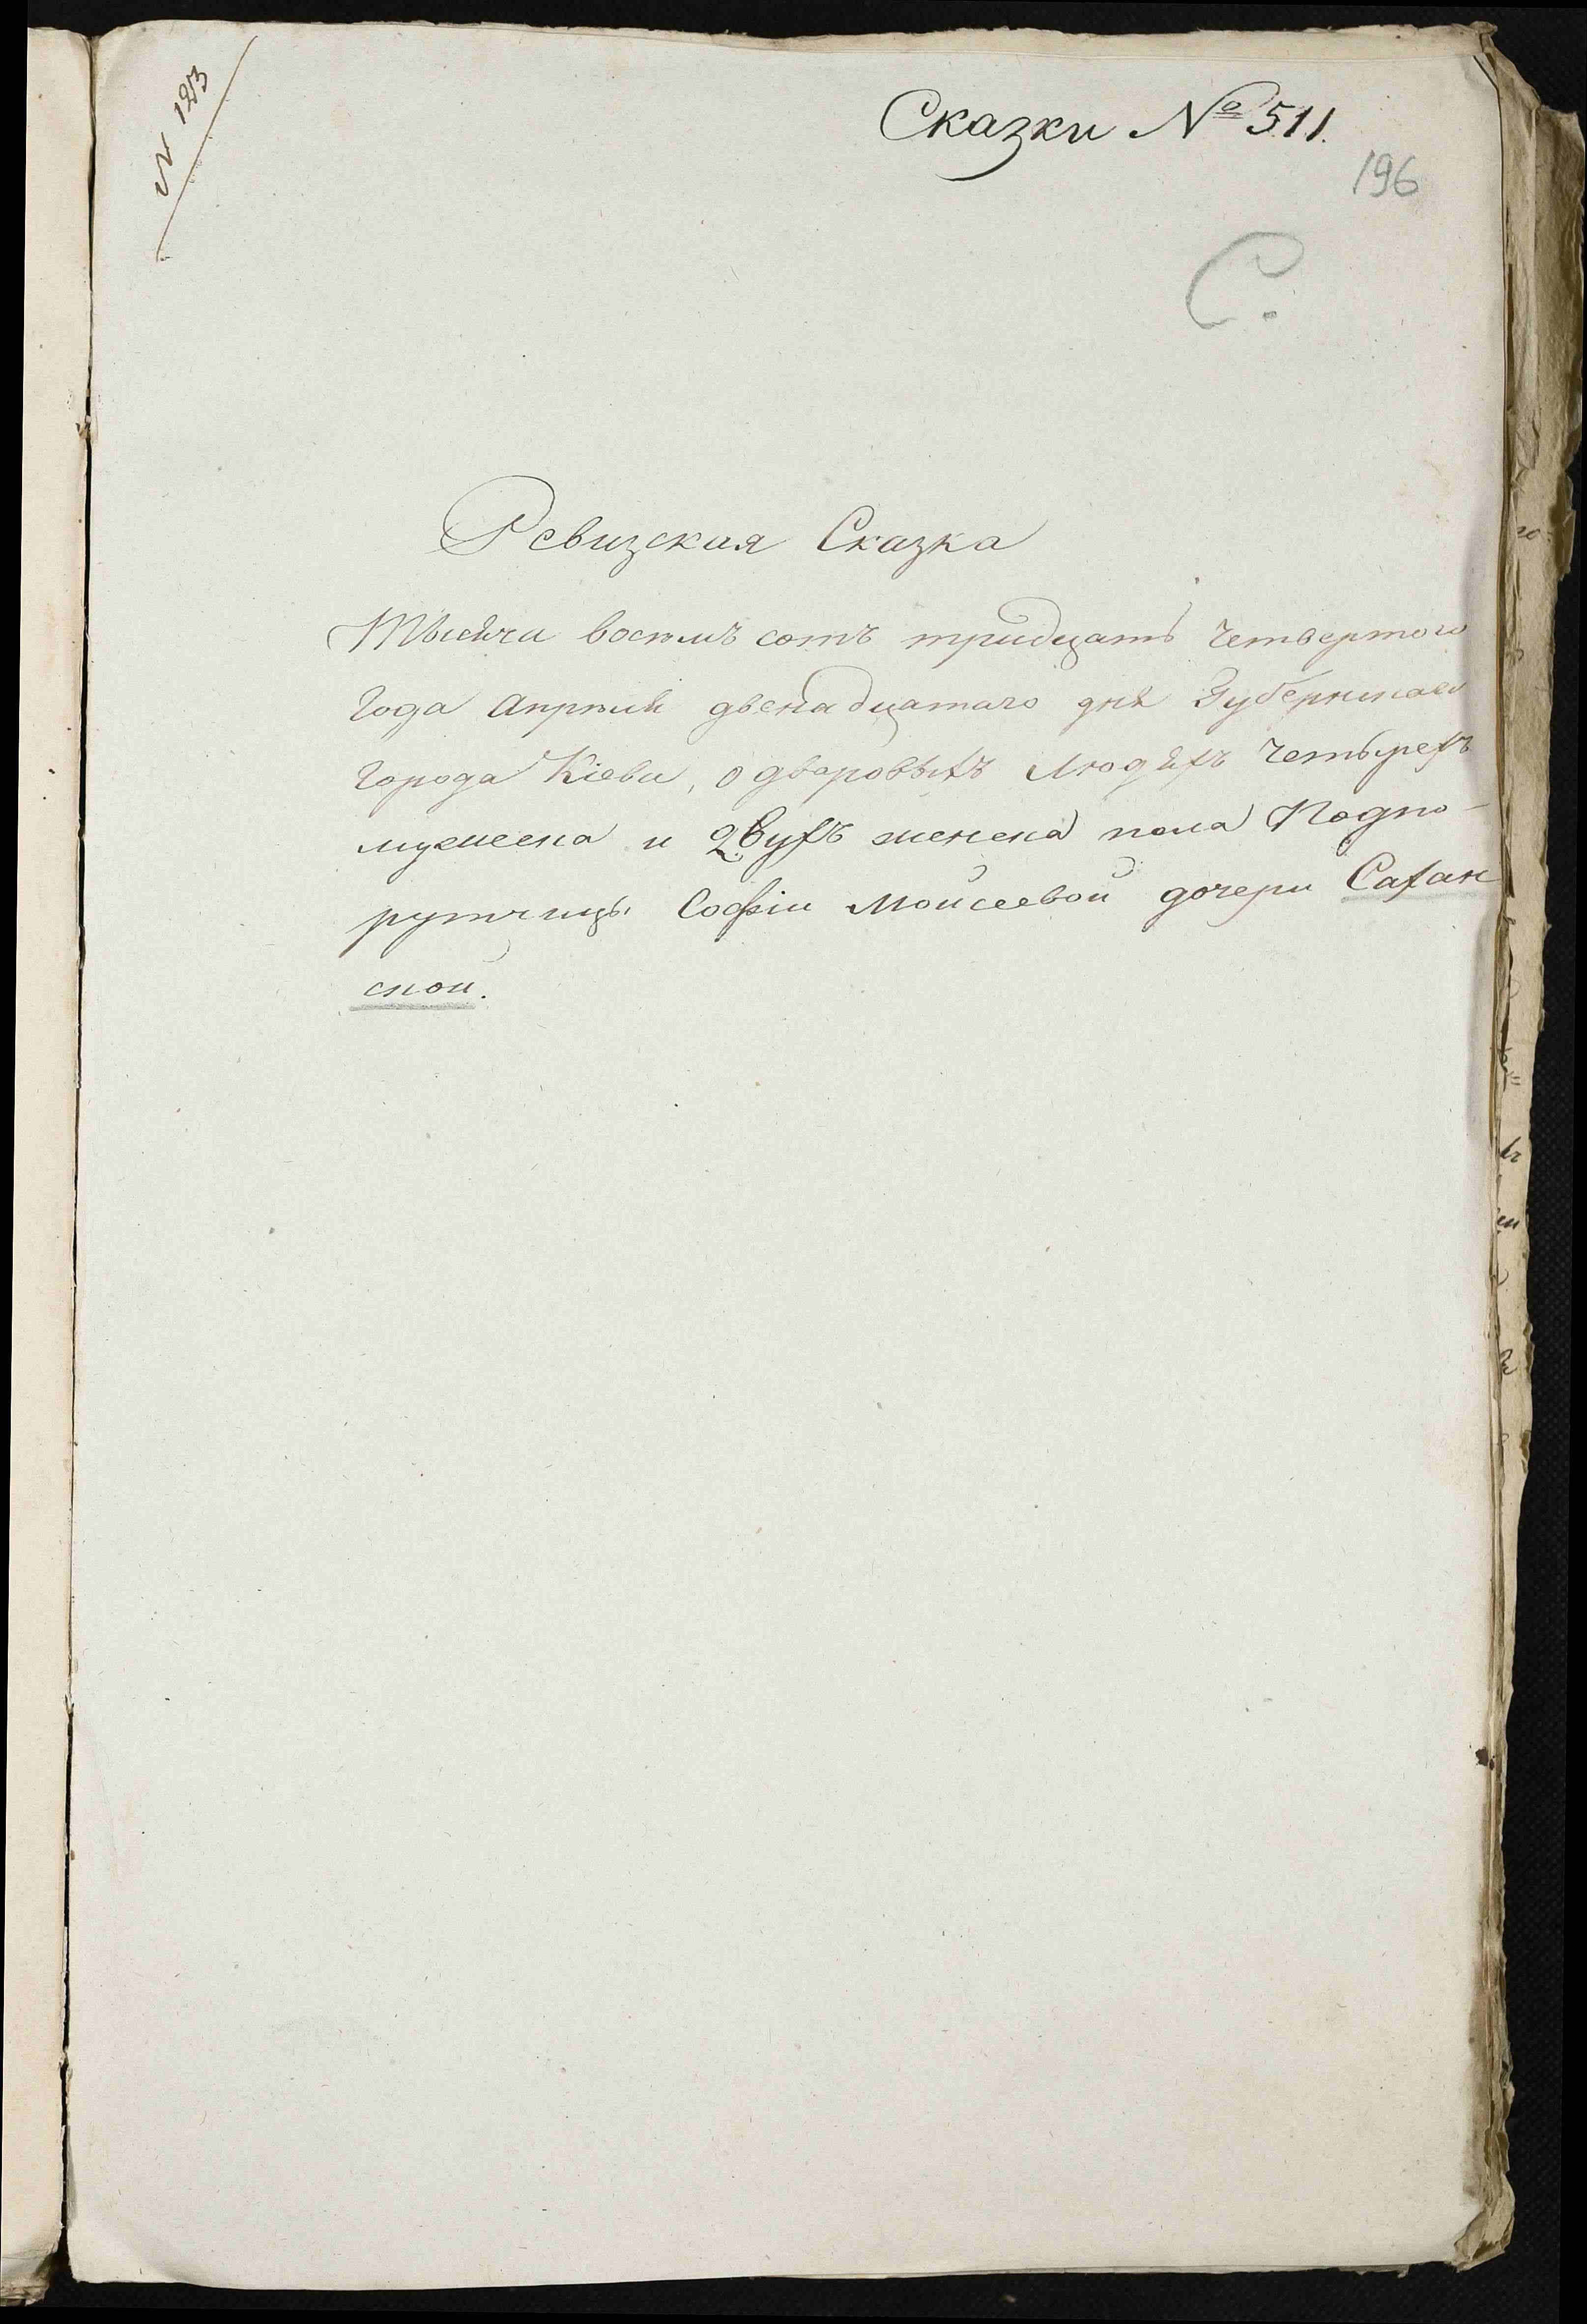 N 1253
Сказки № 511.
196
С.
Ревизская Сказка
Тысяча восемь сотъ тридцать четвертого
года апреля двенадцатаго дня Губернскаго
города Кіева, о дворовыхъ людяхъ четырехъ
мужеска и двухъ женска пола Подпо-
рутчицы Софіи Моисеевой дочери Сахан
ской.